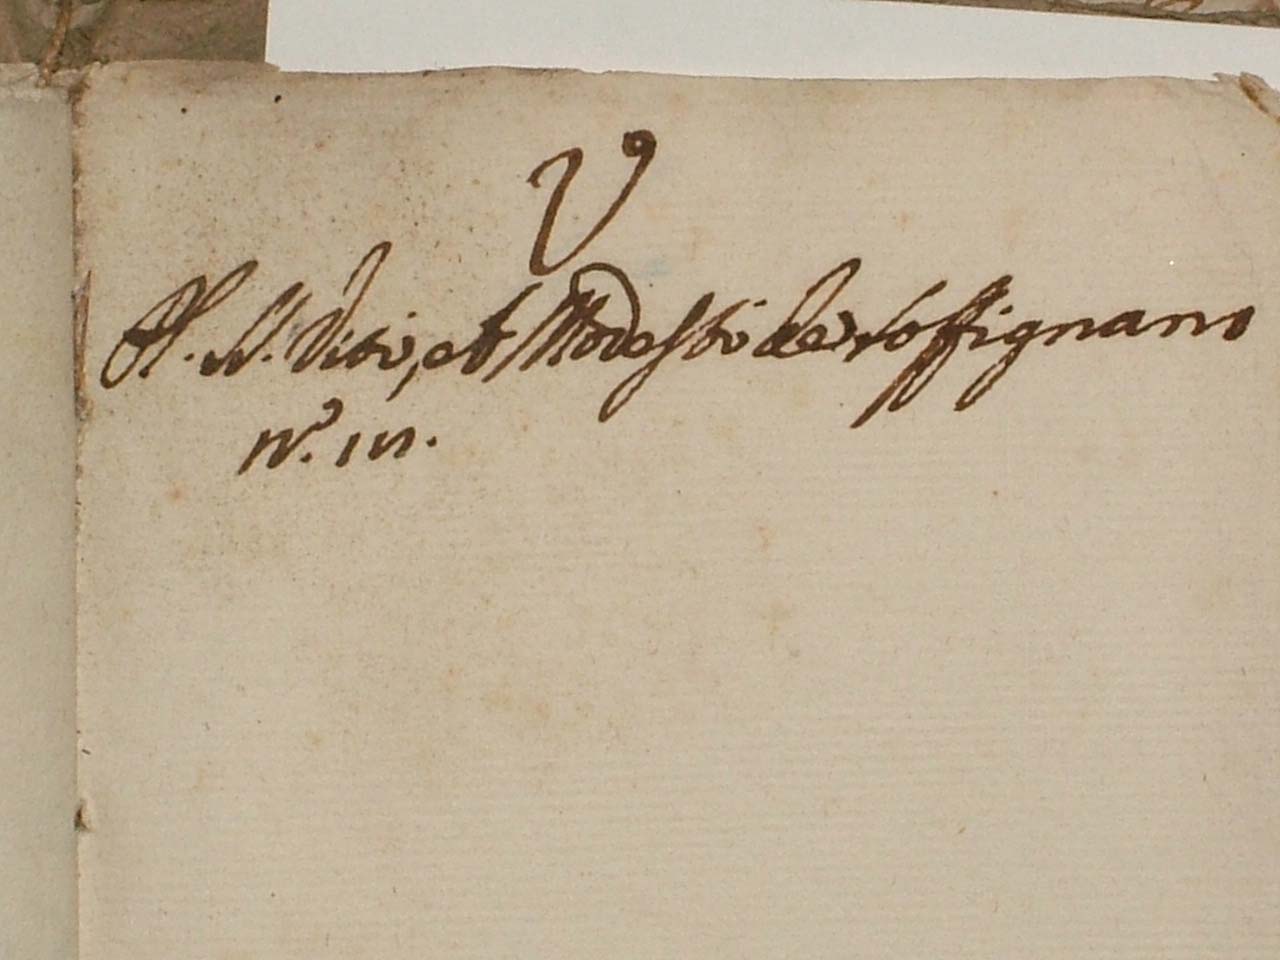 V
S. S. Viti, et Modesti de Loffignano
N. 111.